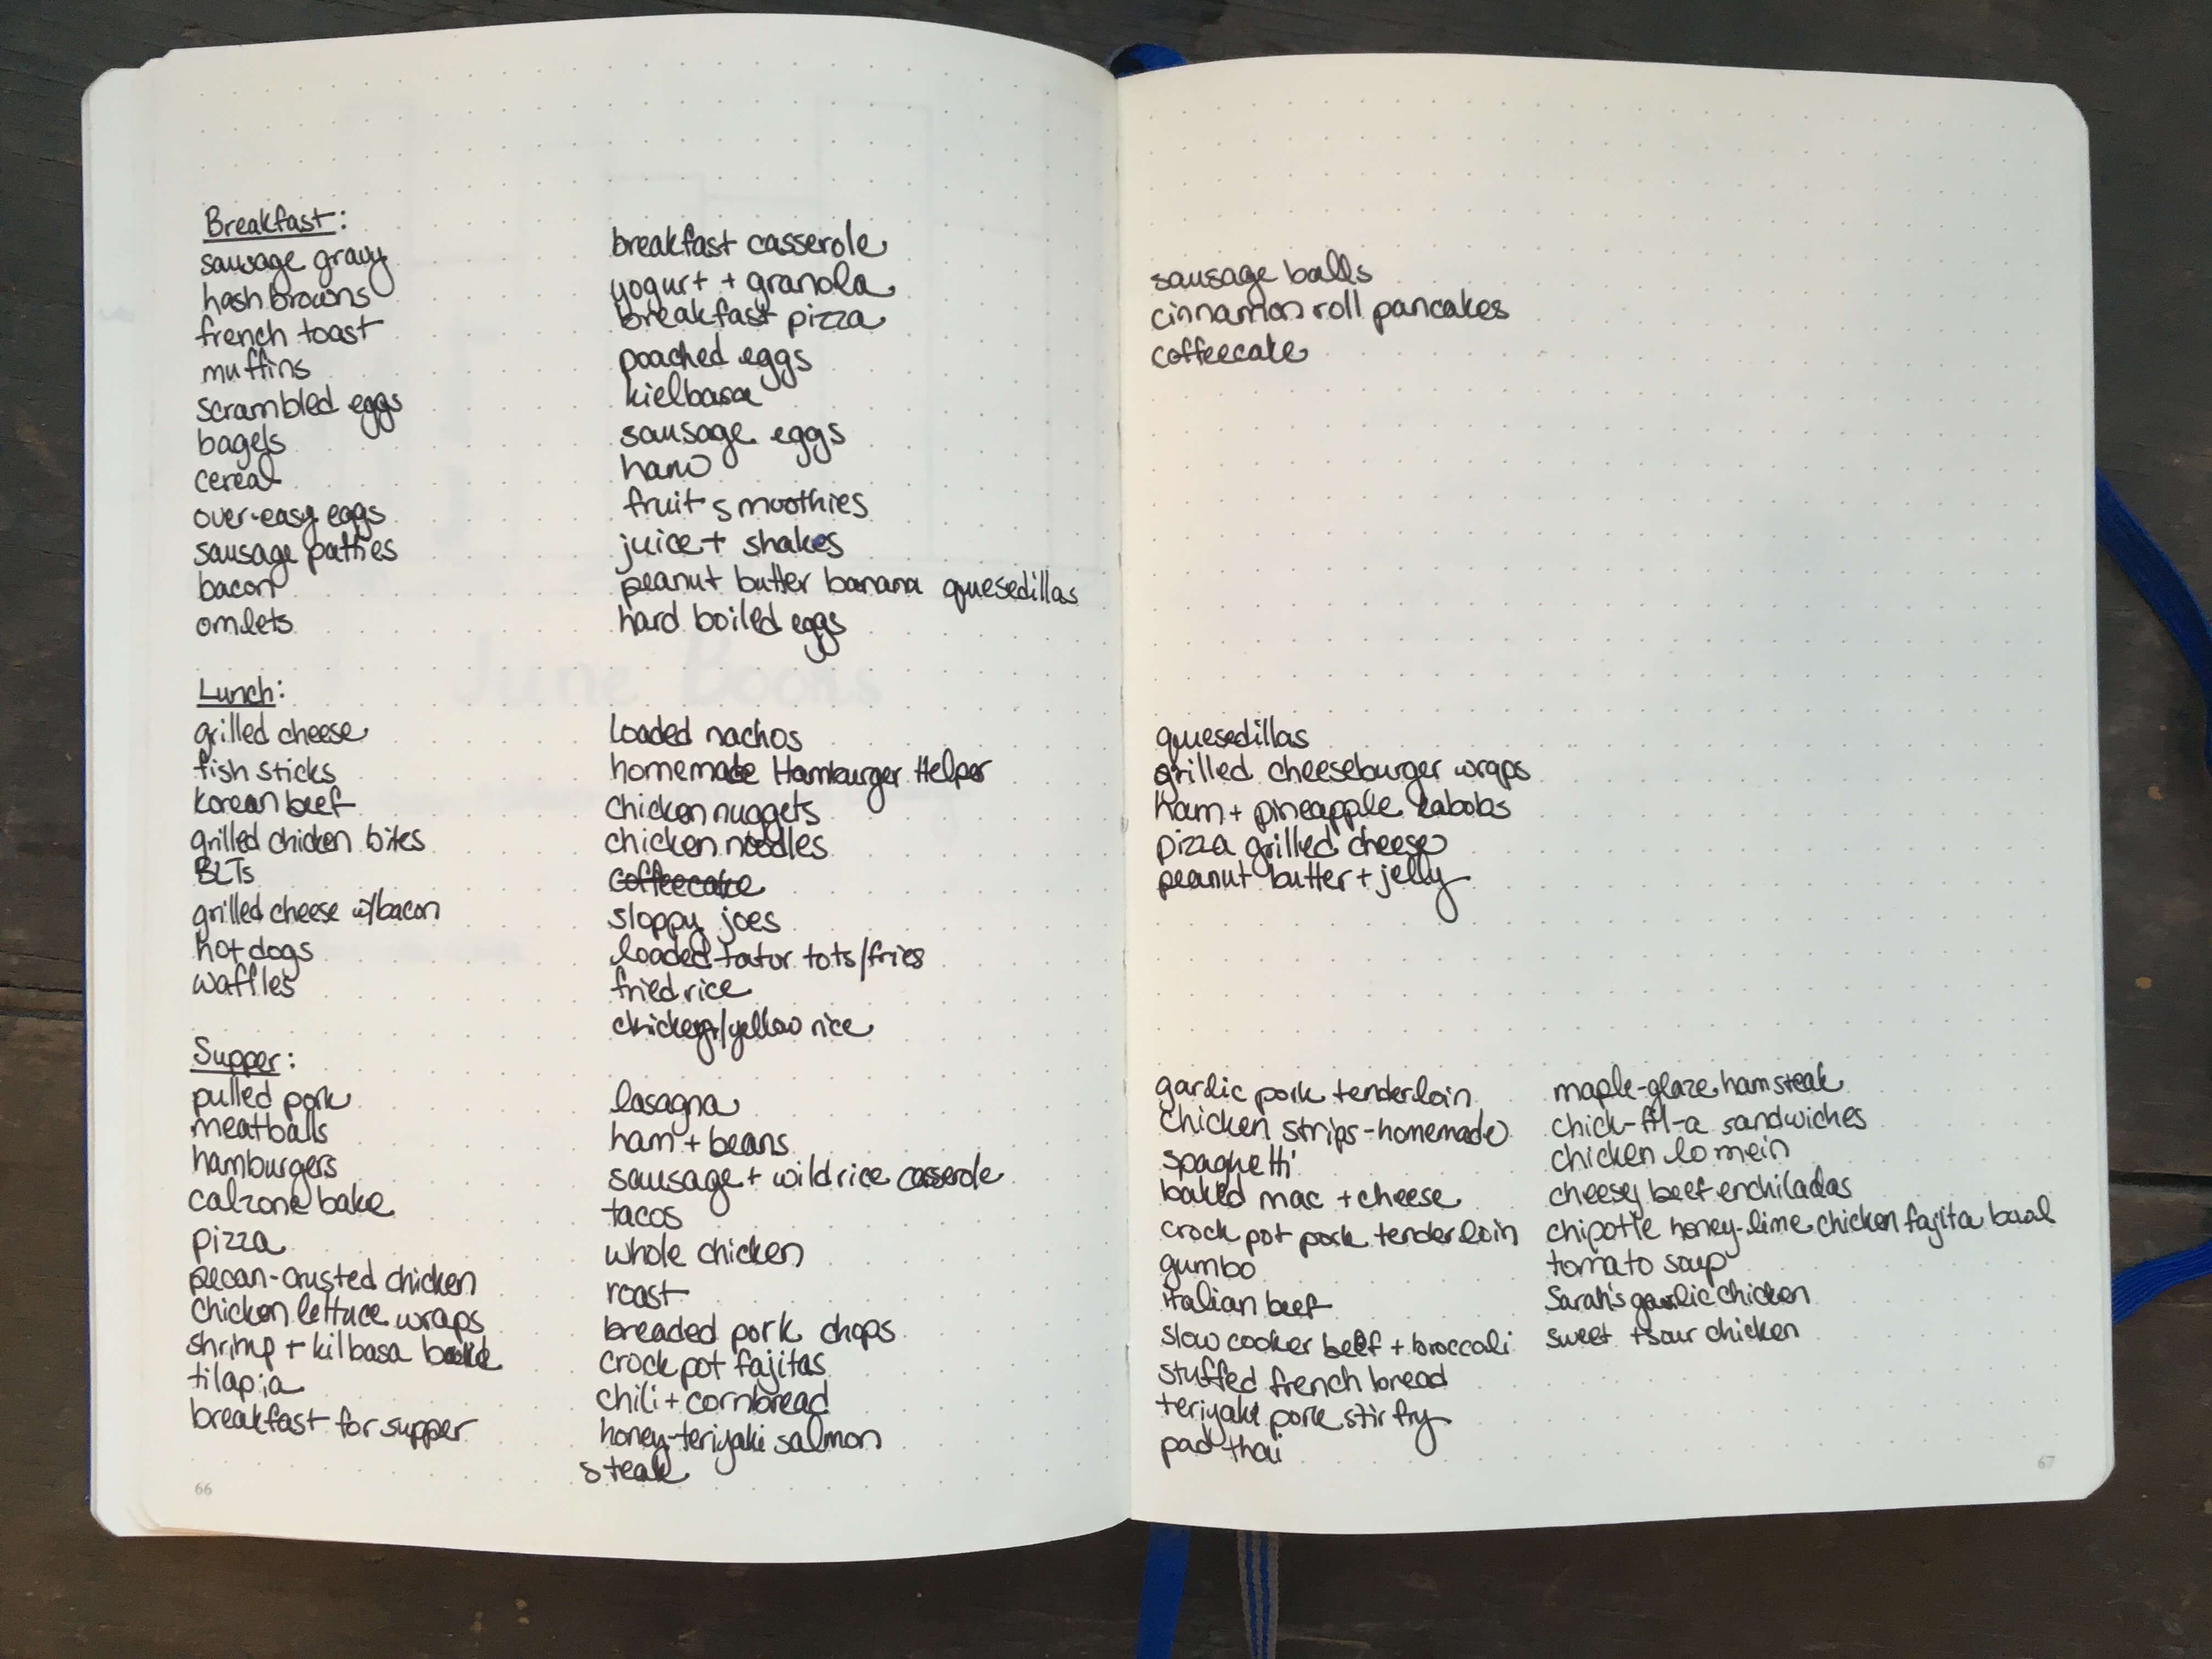 Breakfast:
sausage gravy
hash browns
french toast
muffins
scrambled eggs
bagels
cereal
over-easy eggs
sausage patties
bacon
omlets
breakfast casserole
yogurt + granola
breakfast pizza
poached eggs
kielbasa
sausage eggs
ham
fruit smoothies
juice + shakes
peanut butter banana quesedillas
hard boiled eggs
Lunch:
grilled cheese
fish sticks
korean beef
grilled chicken bites
BLTs
grilled cheese w/bacon
hot dogs
waffles
loaded nachos
homemade Hamburger Helper
chicken nuggets
chicken noodles
coffeecake
sloppy joes
loaded tator tots/fries
fried rice
chicken/yellow rice
Supper:
pulled pork
meatballs
hamburgers
calzone bake
pizza
pecan-crusted chicken
chicken lettuce wraps
shrimp + kilbasa
tilapia
breakfast for supper
lasagna
ham + beans
sausage + wild rice casserole
tacos
whole chicken
roast
breaded pork chops
crock pot fajitas
chili + cornbread
honey-teriyaki salmon
steak
66
sausage balls
cinnamon roll pancakes
coffeecake
quesedillas
grilled cheeseburger wraps
ham + pineapple kabobs
pizza grilled cheese
peanut butter + jelly
garlic pork tenderloin
chicken strips - homemade
spaghetti
baked mac + cheese
crock pot pork tenderloin
gumbo
italian beef
slow cooker beef + broccoli
stuffed french bread
teriyaki pork stir fry
pad thai
maple-glaze ham steak
chick-fil-a sandwiches
chicken lo mein
cheesy beef enchiladas
chipotle honey-lime chicken fajita
tomato soup
Sarah's garlic chicken
sweet + sour chicken
67
June Books